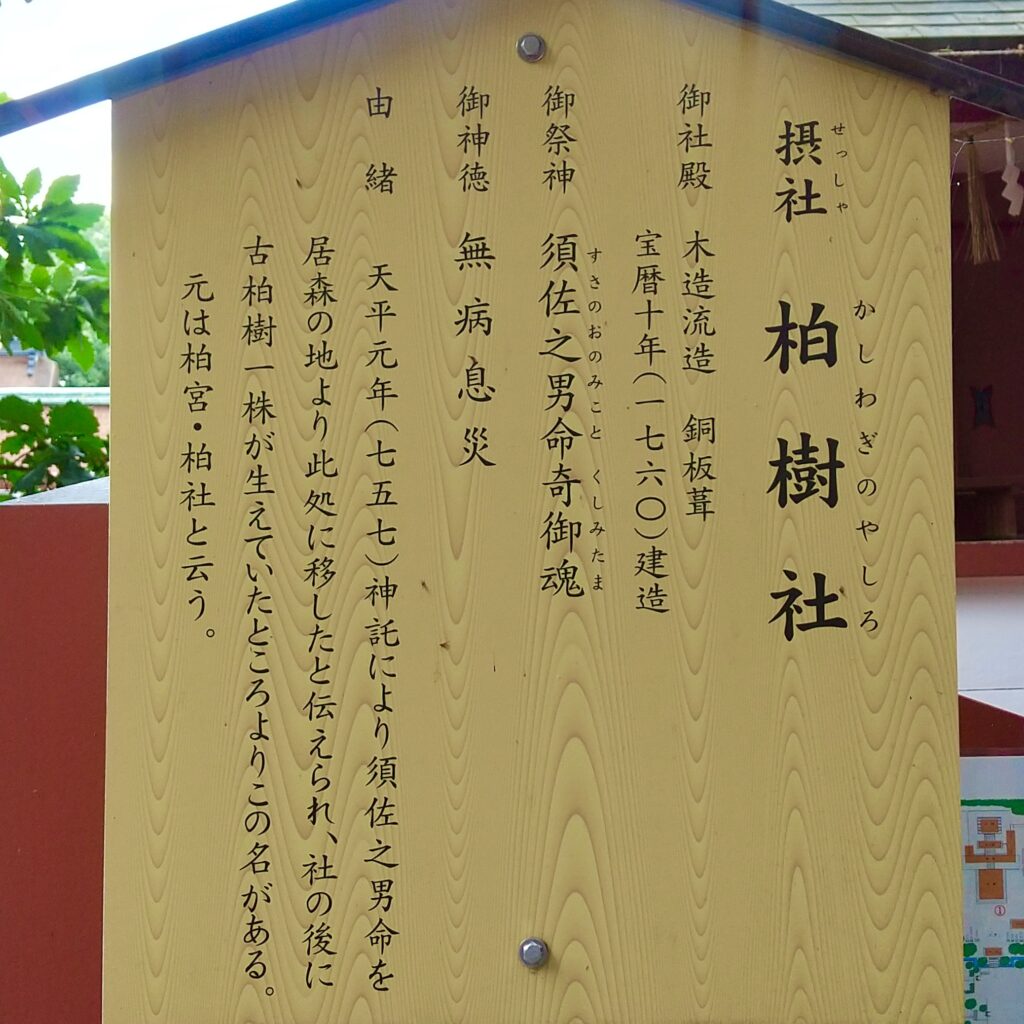 摂社 柏樹社
せっしゃ かしわぎのやしろ
御社殿 木造流造 銅板葺
宝暦十年(一七六〇)建造
御祭神 須佐之男命奇御魂
すさのおのみこと くしみたま
御神徳 無病息災
由緒 天平元年(七五七)神託により須佐之男命を
居森の地より此処に移したと伝えられ、社の後に
古柏樹一株が生えていたところよりこの名がある。
元は柏宮・柏社と云う。
①